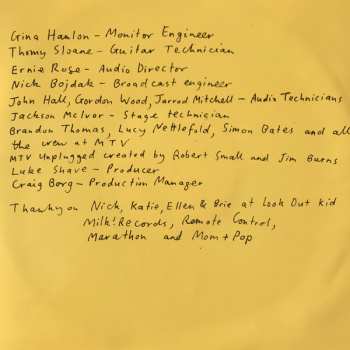 Gina Hanlon - Monitor Engineer
Thomy Sloane - Guitar Technician
Ernie Rose - Audio Director
Nick Bojdak - Broadcast engineer
John Hall, Gordon Wood, Jarrod Mitchell - Audio Technicians
Jackson McIvor - Stage technician
Brandon Thomas, Lucy Nettlefold, Simon Bates and all
the crew at MTV
MTV Unplugged created by Robert Small and Jim Burns
Luke Shave - Producer
Craig Borg - Production Manager
Thankyou Nick, Katie, Ellen & Brie at Look Out kid
Milk! Records, Remote Control,
Marathon and Mom + Pop